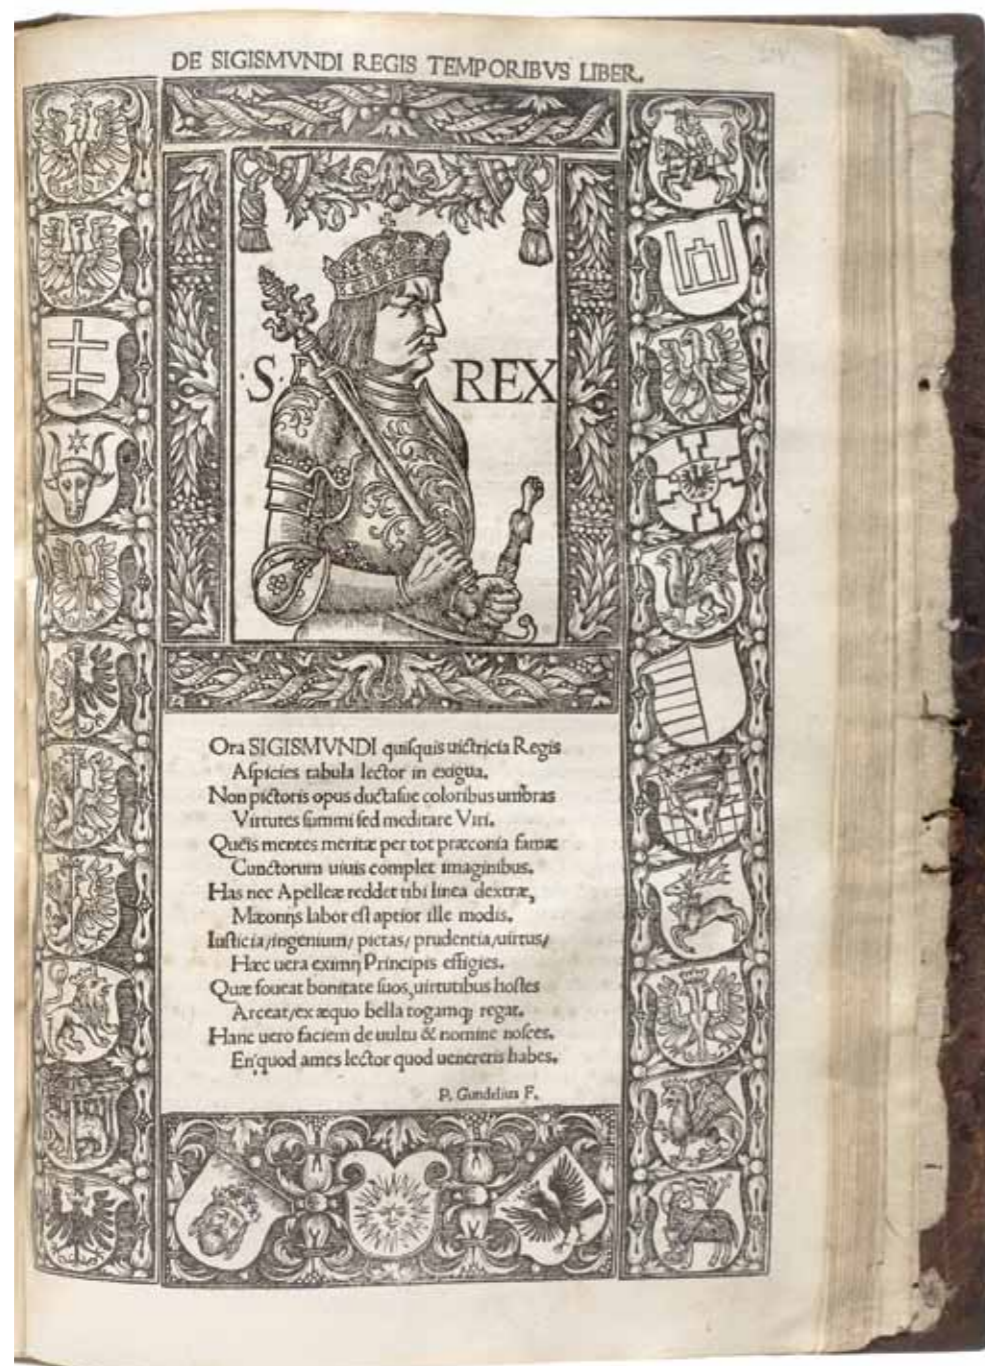 DE SIGISMVNDI REGIS TEMPORIBVS LIBER.
·S· REX
Ora SIGISMVNDI quiſquis uictricia Regis
Aſpicies tabula lector in exigua.
Non pictoris opus ductaſue coloribus umbras
Virtutes ſummi ſed meditare Viri.
Queis mentes meritæ per tot præconia famæ
Cunctorum uiuis complet imaginibus.
Has nec Apelleæ reddet tibi linea dextræ,
Mæonijs labor eſt aptior ille modis.
Iuſticia/ingenium/ pietas/ prudentia/uirtus/
Hæc uera eximij Principis effigies.
Quæ foueat bonitate ſuos, uirtutibus hoſtes
Arceat/ex æquo bella togamq; regat.
Hanc uero faciem de uultu & nomine noſces.
En quod ames lector quod uenereris habes.
P. Gundelius F.